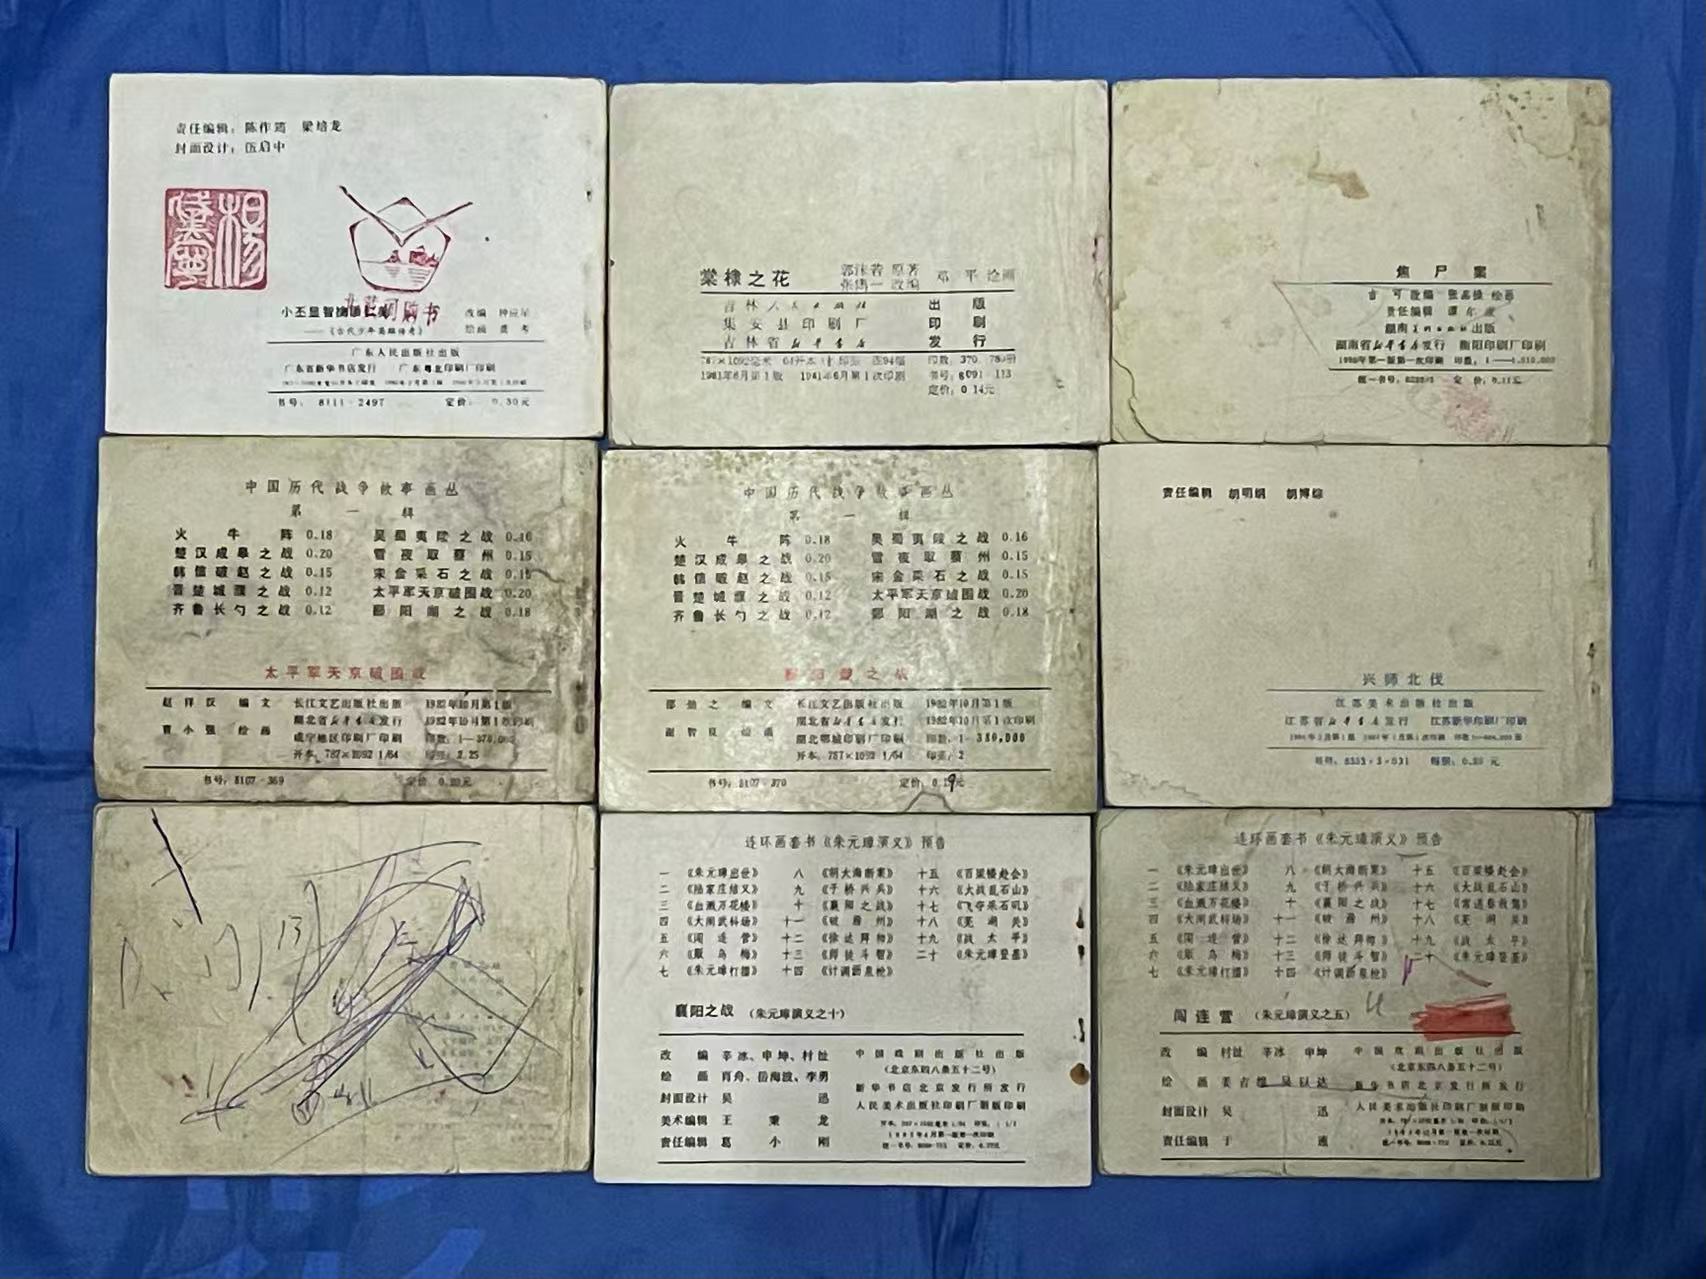 责任编辑：陈作筠 梁培龙
封面设计：伍启中
杨
北 购书
小丕显智擒
《古代少年英雄传奇》
改编 钟应星
广东人民出版社出版
广东省新华书店发行 广东粤北印刷厂印刷
书号：8111·2497 定价：0.30元
棠棣之花
郭沫若 原著
张雋一 改编
邓 平 绘画
吉林人民出版社 出版
集安县印刷厂 印刷
吉林省新华书店 发行
787×1092毫米 64开本
印数：370,780册
1981年6月第1版 1981年6月第1次印刷
书号：8091·113
定价：0.14元
焦尸案
改编
绘画
责任编辑
湖南美术出版社出版
湖南省新华书店发行 衡阳印刷厂印刷
1980年第一版第一次印刷
定价：0.11元
中国历代战争故事画丛
第一辑
火牛阵 0.18 吴蜀夷陵之战 0.16
楚汉成皋之战 0.20 雪夜取蔡州 0.15
韩信破赵之战 0.15 宋金采石之战 0.15
晋楚城濮之战 0.12 太平军天京破围战 0.20
齐鲁长勺之战 0.12 鄱阳湖之战 0.18
太平军天京破围战
编文 长江文艺出版社出版 1982年10月第1版
湖北省新华书店发行 1982年10月第1次印刷
曹小强 绘画
咸宁地区印刷厂印刷
开本：787×1092 1/64 印张：2.25
书号：8107·369 定价 0.20元
中国历代战争故事画丛
第一辑
火牛阵 0.18 吴蜀夷陵之战 0.16
楚汉成皋之战 0.20 雪夜取蔡州 0.15
韩信破赵之战 0.15 宋金采石之战 0.15
晋楚城濮之战 0.12 太平军天京破围战 0.20
齐鲁长勺之战 0.12 鄱阳湖之战 0.18
鄱阳湖之战
编文 长江文艺出版社出版 1982年10月第1版
湖北省新华书店发行 1982年10月第1次印刷
谢智良 绘画
湖北鄂城印刷厂印刷 印数：1—380,000
开本：787×1092 1/64 印张：2
书号：8107·370 定价：0.19元
责任编辑 胡明纲 胡博综
兴师北伐
江苏美术出版社出版
江苏省新华书店发行 江苏新华印刷厂印刷
书号：8353·3·031 定价：0.20 元
13
连环画套书《朱元璋演义》预告
一 《朱元璋出世》 八 《胡大海断案》 十五 《百梁楼赴会》
二 《陆家庄结义》 九 《于桥兴兵》 十六 《大战乱石山》
三 《血溅万花楼》 十 《襄阳之战》 十七 《飞夺采石矶》
四 《大闹武科场》 十一 《破滁州》 十八 《芜湖关》
五 《闯连营》 十二 《徐达拜帅》 十九 《战太平》
六 《贩乌梅》 十三 《师徒斗智》 二十 《朱元璋登基》
七 《朱元璋打擂》 十四 《计调沥泉枪》
襄阳之战 （朱元璋演义之十）
改编 辛冰、申坤、村祉
绘画 肖舟、岳海波、李勇
封面设计 吴迅
美术编辑 王秉龙
责任编辑 葛小刚
中国戏剧出版社出版
（北京东四八条五十二号）
新华书店北京发行所发行
人民美术出版社印刷厂制版印刷
连环画套书《朱元璋演义》预告
一 《朱元璋出世》 八 《胡大海断案》 十五 《百梁楼赴会》
二 《陆家庄结义》 九 《于桥兴兵》 十六 《大战乱石山》
三 《血溅万花楼》 十 《襄阳之战》 十七
四 《大闹武科场》 十一 《破滁州》 十八 《芜湖关》
五 《闯连营》 十二 《徐达拜帅》 十九 《战太平》
六 《贩乌梅》 十三 《师徒斗智》 二十 《朱元璋登基》
七 《朱元璋打擂》 十四 《计调沥泉枪》
闯连营 （朱元璋演义之五）
改编 村祉 辛冰 申坤
绘画 姜吉维 吴以达
封面设计 吴迅
责任编辑 于速
中国戏剧出版社出版
（北京东四八条五十二号）
新华书店北京发行所发行
人民美术出版社印刷厂制版印刷